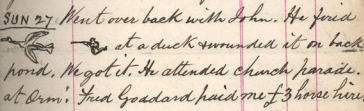 SUN 27 Went over back with John. He fired
at a duck & wounded it on back
pond. We got it. He attended church parade
at Orm! Fred Goddard paid me £3 horse hire